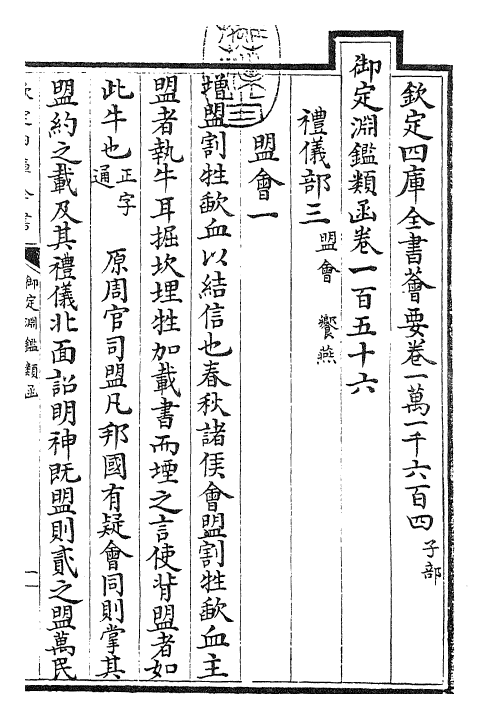 欽定四庫全書薈要卷一萬一千六百四 子部
御定淵鑑類函卷一百五十六
禮儀部三 盟會 饗燕
盟會一
增盟割牲歃血以結信也春秋諸侯會盟割牲歃血主
盟者執牛耳掘坎埋牲加載書而堙之言使背盟者如
此牛也正字通 原周官司盟凡邦國有疑會同則掌其
盟約之載及其禮儀北面詔明神既盟則貳之盟萬民
御定淵鑑類函
一